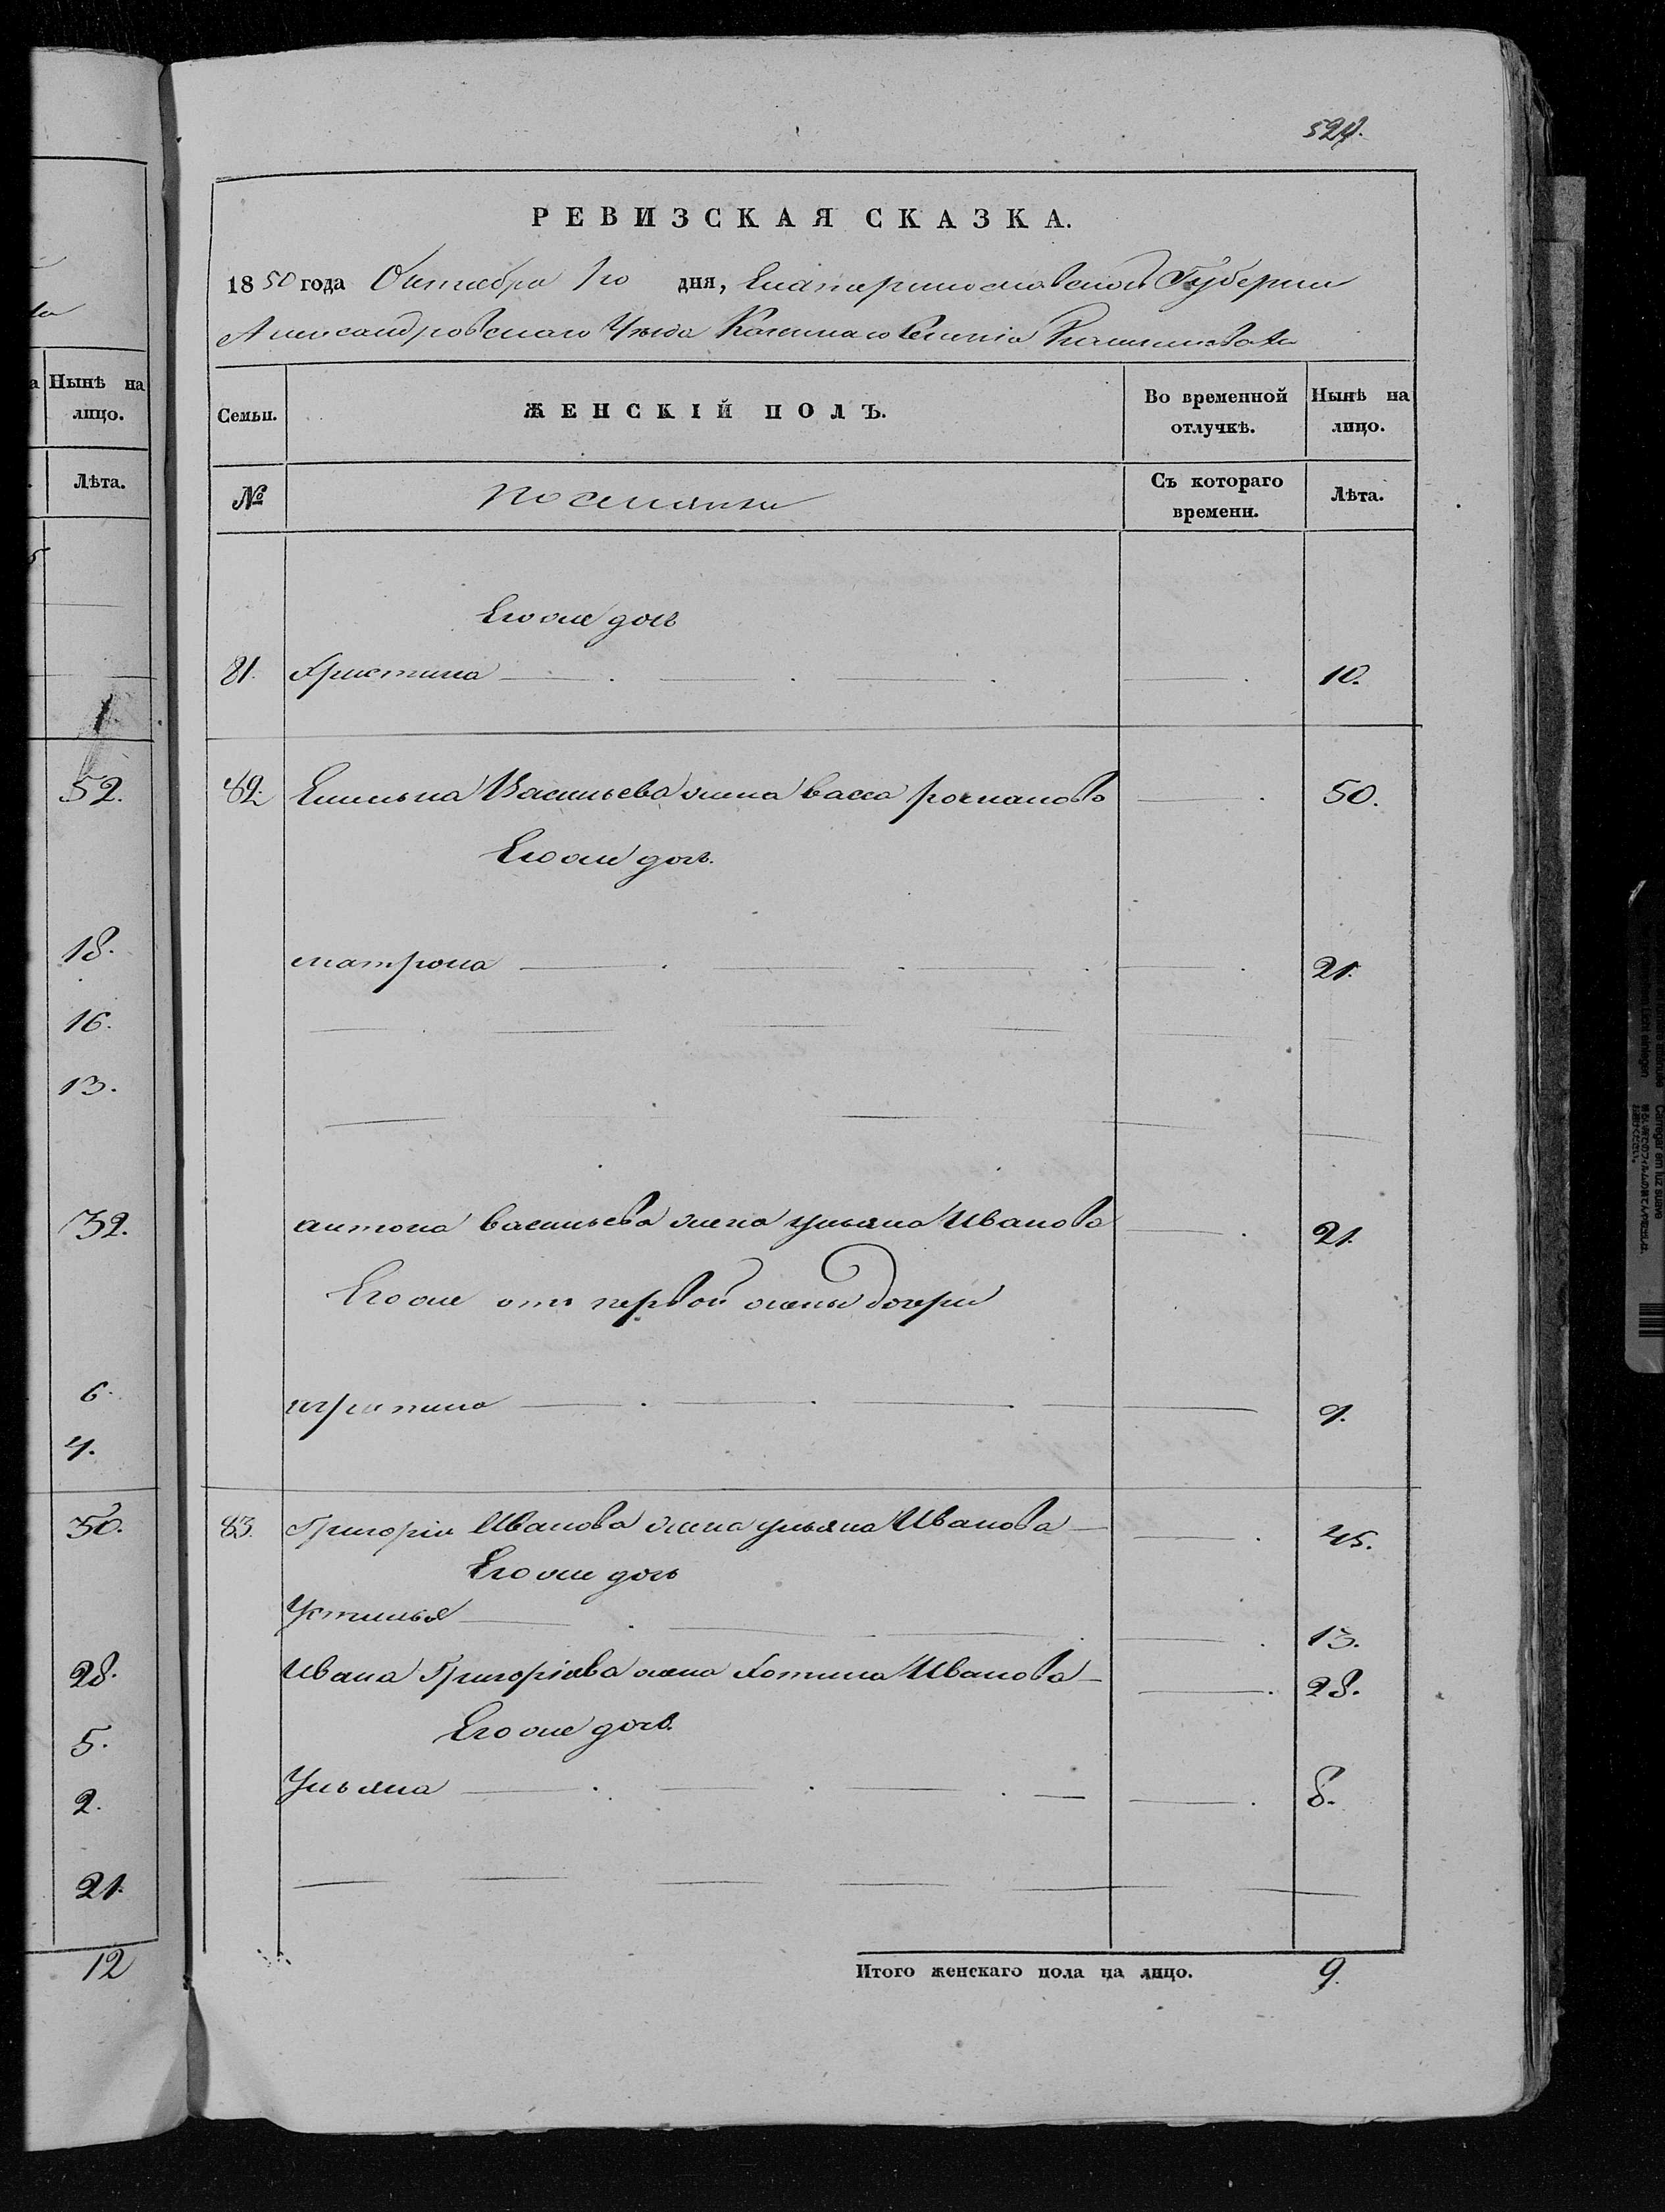 524.
РЕВИЗСКАЯ СКАЗКА.
1850 года Октября 1го дня, Екатеринославской Губернии
Александровскаго Уѣзда Казеннаго Селенія
Семьи.
ЖЕНСКІЙ ПОЛЪ.
Во временной отлучкѣ.
Нынѣ на лицо.
№
поселянки
Съ котораго времени.
Лѣта.
Его же дочь
81. Христина 10.
82. Емельяна Васильева жена васса романова 50.
Его же дочь.
матрона 21.
антона васильева жена ульяна Иванова 21.
Его же отъ первой жены дочери
9.
83. Григорія Иванова жена ульяна Иванова 45.
Его же дочь
Устинья 13.
Ивана Григоріева жена Хотина Иванова 28.
Его же дочь.
Ульяна 8.
Итого женскаго пола на лицо. 9.
Нынѣ на
лицо.
Лѣта.
1.
52.
18.
16.
13.
32.
6.
4.
50.
28.
5.
2.
21.
12